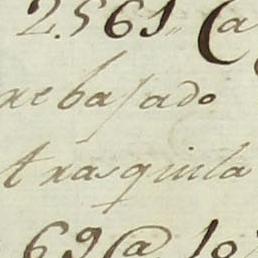 2.561 @
rebajado
trasquila
69 @ 10